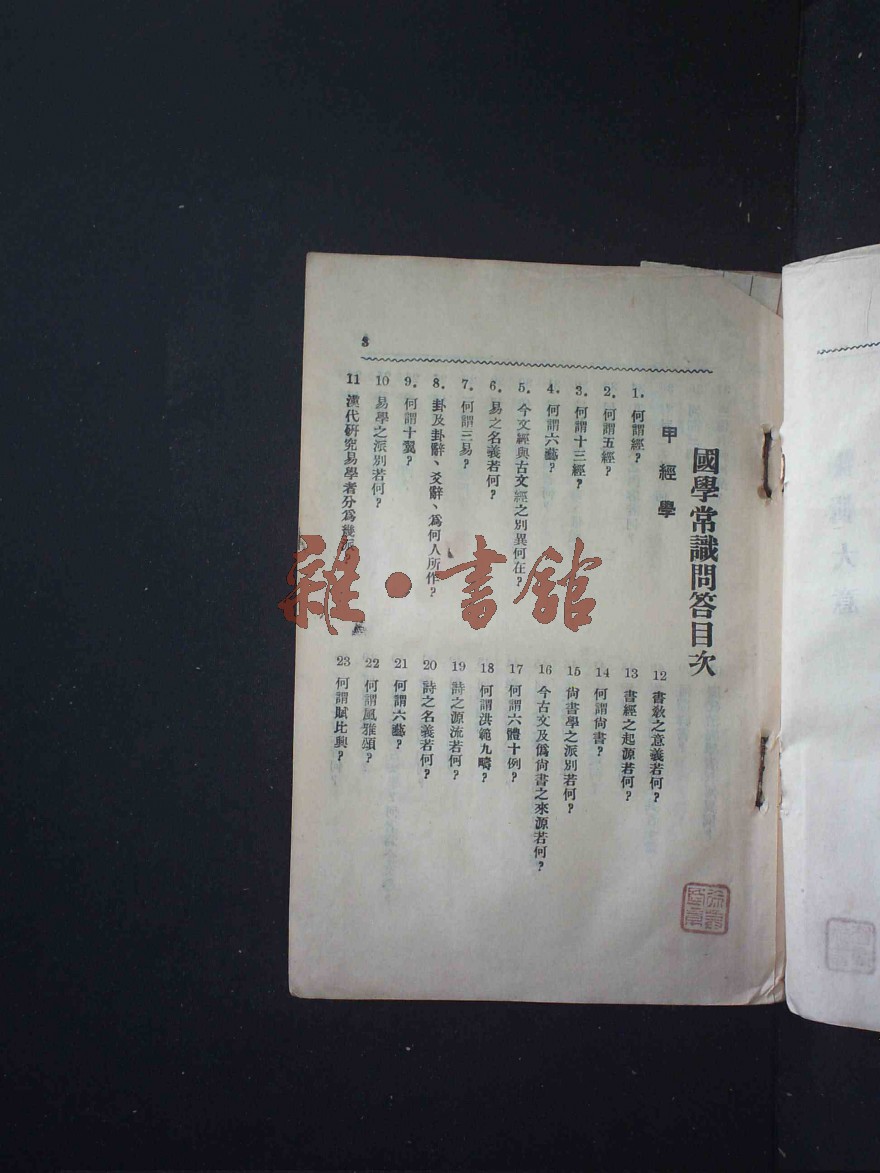 國學常識問答目次
甲 經 學
1. 何謂經？
2. 何謂五經？
3. 何謂十三經？
4. 何謂六藝？
5. 今文經與古文經之別異何在？
6. 易之名義若何？
7. 何謂三易？
8. 卦及卦辭、爻辭、爲何人所作？
9. 何謂十翼？
10 易學之派別若何？
11 漢代研究易學者分爲幾派
12 書敎之意義若何？
13 書經之起源若何？
14 何謂尙書？
15 尙書學之派別若何？
16 今古文及僞尙書之來源若何？
17 何謂六體十例？
18 何謂洪範九疇？
19 詩之源流若何？
20 詩之名義若何？
21 何謂六藝？
22 何謂風雅頌？
23 何謂賦比興？
3
雜·書館
大意